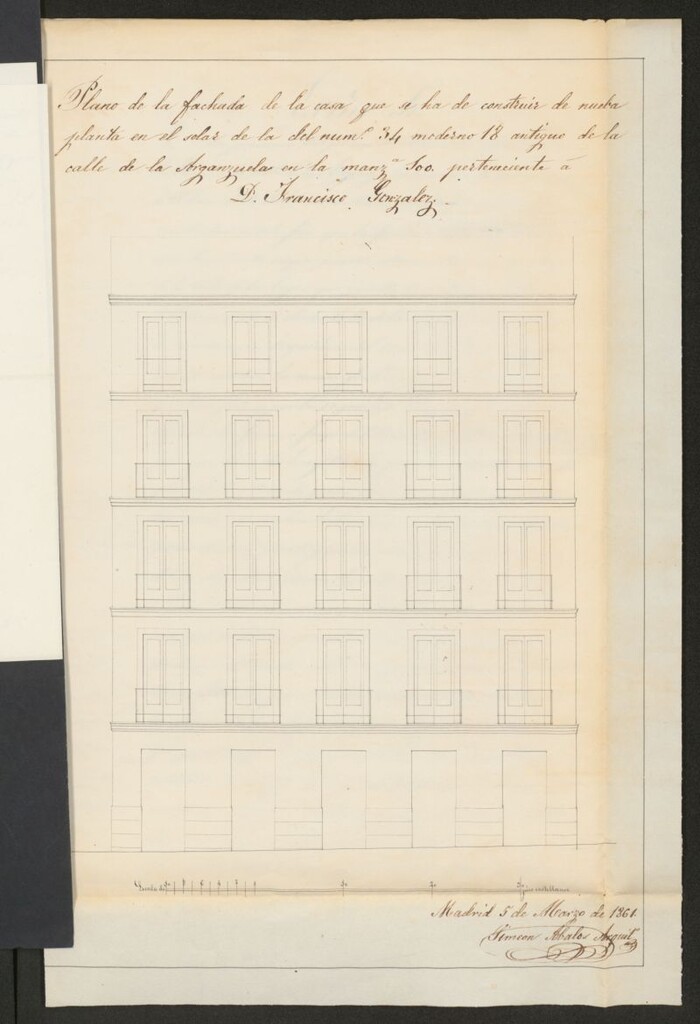 Plano de la fachada de la casa que se ha de construir de nueba
planta en el solar de la del num.º 34 moderno 18 antiguo de la
calle de la Arganzuela en la manz.ª 100. perteneciente á
D. Francisco Gonzalez.
Escala de pies castellanos
Madrid 5 de Marzo de 1861.
Simeon Abalos Arquit.